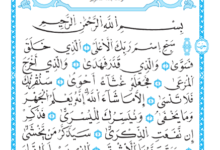 بِسْمِ اللَّهِ الرَّحْمَٰنِ الرَّحِيمِ
سَبِّحِ اسْمَ رَبِّكَ الْأَعْلَى الَّذِي خَلَقَ
فَسَوَّىٰ وَالَّذِي قَدَّرَ فَهَدَىٰ وَالَّذِي أَخْرَجَ
الْمَرْعَىٰ فَجَعَلَهُ غُثَاءً أَحْوَىٰ سَنُقْرِئُكَ
فَلَا تَنسَىٰ إِلَّا مَا شَاءَ اللَّهُ إِنَّهُ يَعْلَمُ الْجَهْرَ
وَمَا يَخْفَىٰ وَنُيَسِّرُكَ لِلْيُسْرَىٰ فَذَكِّرْ
إِن نَّفَعَتِ الذِّكْرَىٰ سَيَذَّكَّرُ مَن يَخْشَىٰ